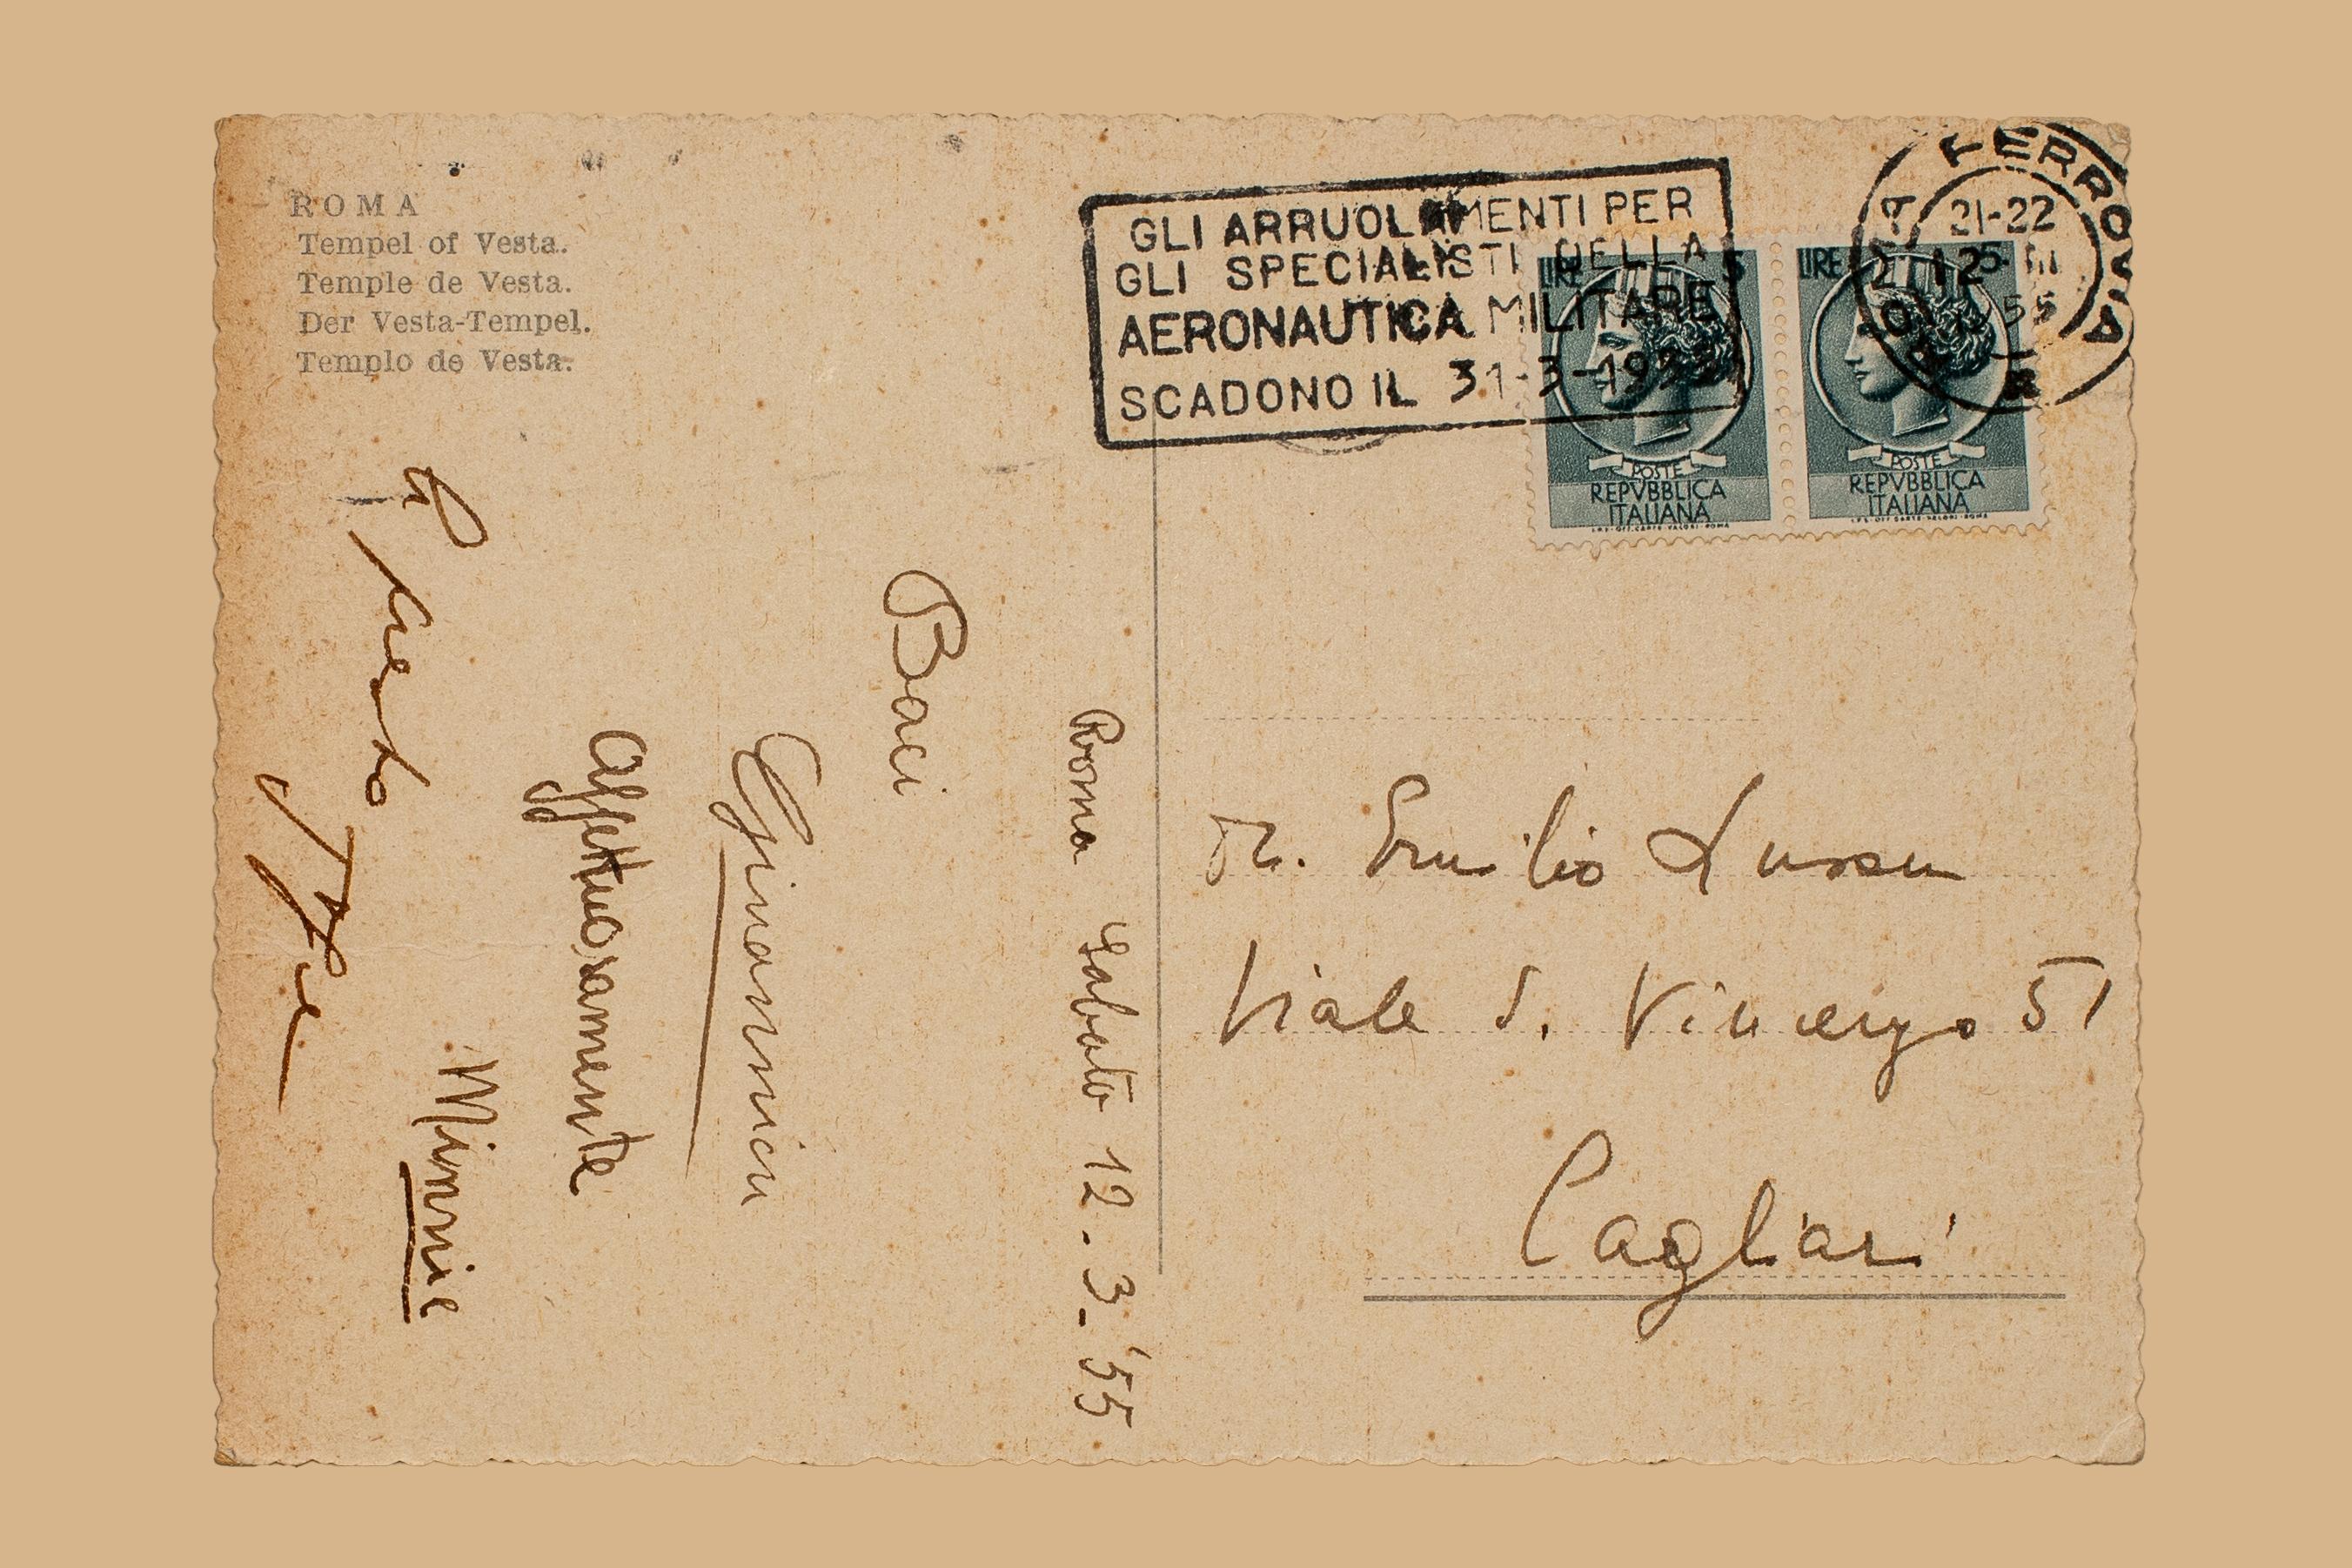 ROMA
Tempel of Vesta.
Temple de Vesta.
Der Vesta-Tempel.
Templo de Vesta.
GLI ARRUOLAMENTI PER
GLI SPECIALISTI DELLA
AERONAUTICA MILITARE
SCADONO IL 31-3-1955
FERROVIA
21-22
12 III
55
LIRE 5
POSTE
REPVBBLICA
ITALIANA
I.P.S.-OFF.CARTE-VALORI-ROMA
LIRE 5
POSTE
REPVBBLICA
ITALIANA
I.P.S.-OFF.CARTE-VALORI-ROMA
Roma Sabato 12.3.'55
Baci
Giovannica
Affettuosamente
Minnie
Emilio Lussu
Viale S. Vincenzo 51
Cagliari